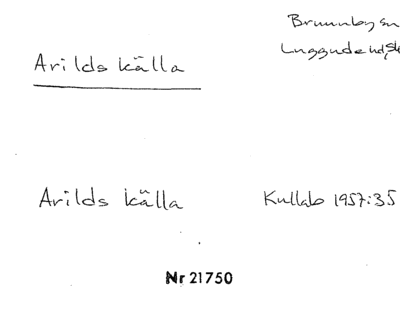 Brunnby sn
Luggude hd, Sk
Arilds källa
Arilds källa Kullab 1957:35
Nr 21750